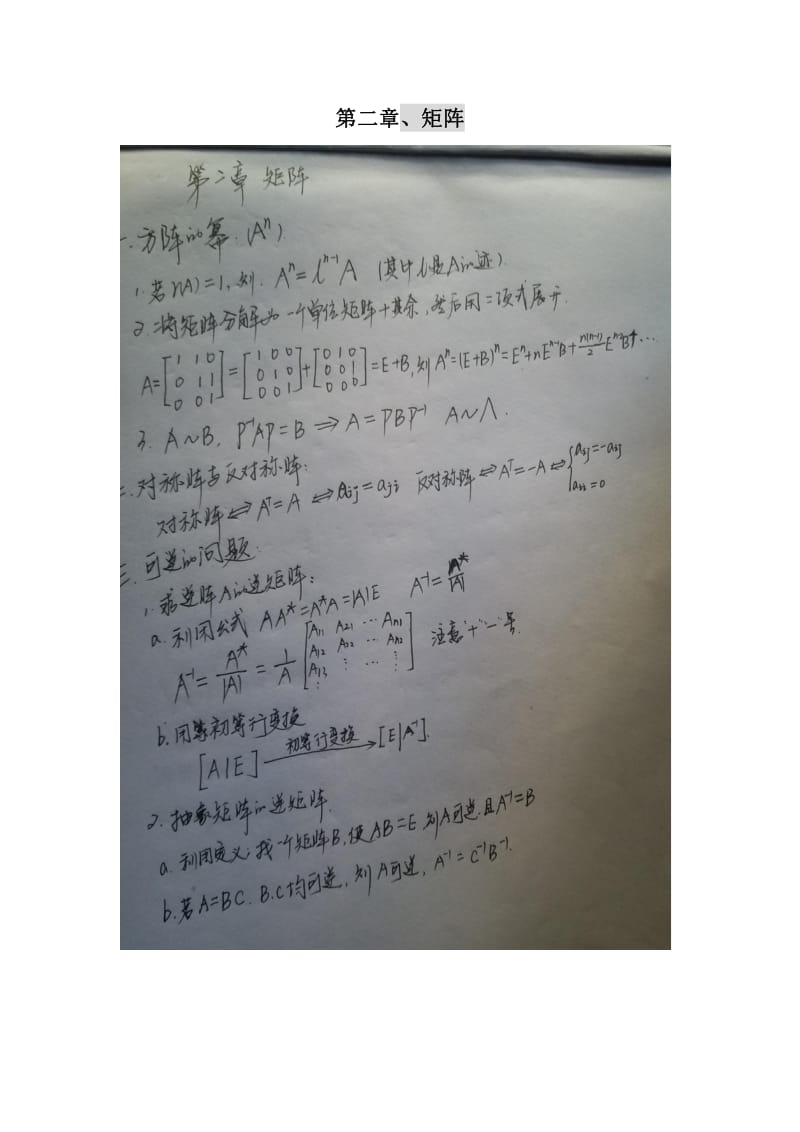 第二章、矩阵
第二章 矩阵
一. 方阵的幂. (Aⁿ).
1. 若r(A)=1, 则. Aⁿ=lⁿ⁻¹A (其中l是A的迹).
2. 将矩阵分解为一个单位矩阵+其余, 然后用二项式展开.
A=[1 1 0; 0 1 1; 0 0 1]=[1 0 0; 0 1 0; 0 0 1]+[0 1 0; 0 0 1; 0 0 0]=E+B, 则Aⁿ=(E+B)ⁿ=Eⁿ+nEⁿ⁻¹B+n(n-1)/2 Eⁿ⁻²B²+…
3. A~B, P⁻¹AP=B ⇒ A=PBP⁻¹ A~Λ.
二. 对称阵与反对称阵:
对称阵⇔Aᵀ=A ⇔aij=aji 反对称阵⇔Aᵀ=-A⇔{aij=-aji
aii=0
三. 可逆的问题:
1. 求逆阵A的逆矩阵:
a. 利用公式 AA*=A*A=|A|E A⁻¹=A*/|A|
A⁻¹=A*/|A|=1/A[A11 A21 … An1; A12 A22 … An2; A13 ⋮ … ⋮; ⋮] 注意"+""-"号.
b. 用等初等行变换
[A|E] 初等行变换→[E|A⁻¹].
2. 抽象矩阵的逆矩阵.
a. 利用定义: 找一个矩阵B, 使AB=E, 则A可逆. 且A⁻¹=B
b. 若A=BC. B.C均可逆, 则A可逆, A⁻¹=C⁻¹B⁻¹.